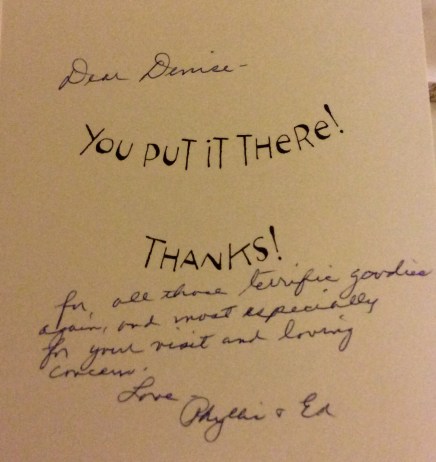 Dear Denise-
YOU PUT iT THeRe!
THANKS!
for all those terrific goodies
again, and most especially
for your visit and loving
concern.
Love -
Phyllis & Ed